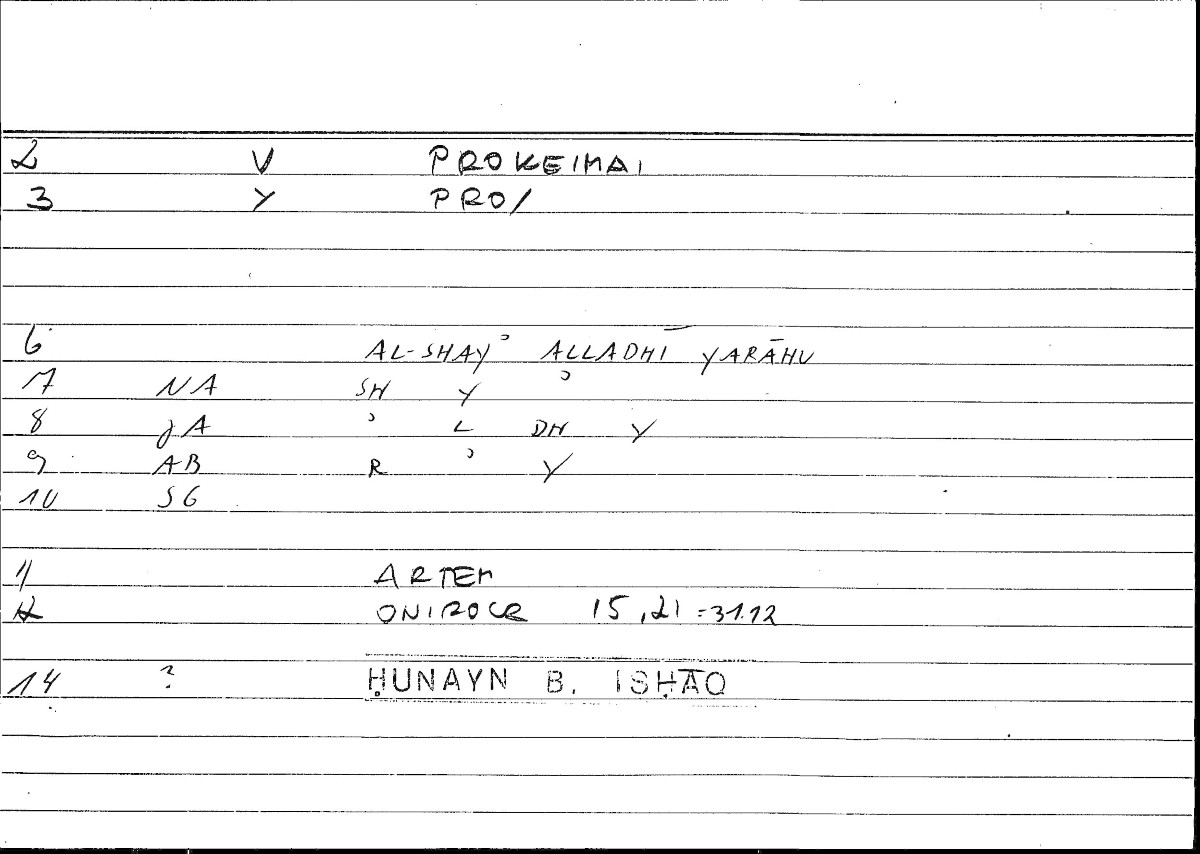 2 V PROKEIMAI
3 Y PRO/
6 AL-SHAYʾ ALLADHĪ YARĀHU
7 NA SH Y ʾ
8 JA ʾ L DH Y
9 AB R ʾ Y
10 SG
11 ARTEM
12 ONIROCR 15,21 =31.12
14 ? ḤUNAYN B. ISḤĀQ